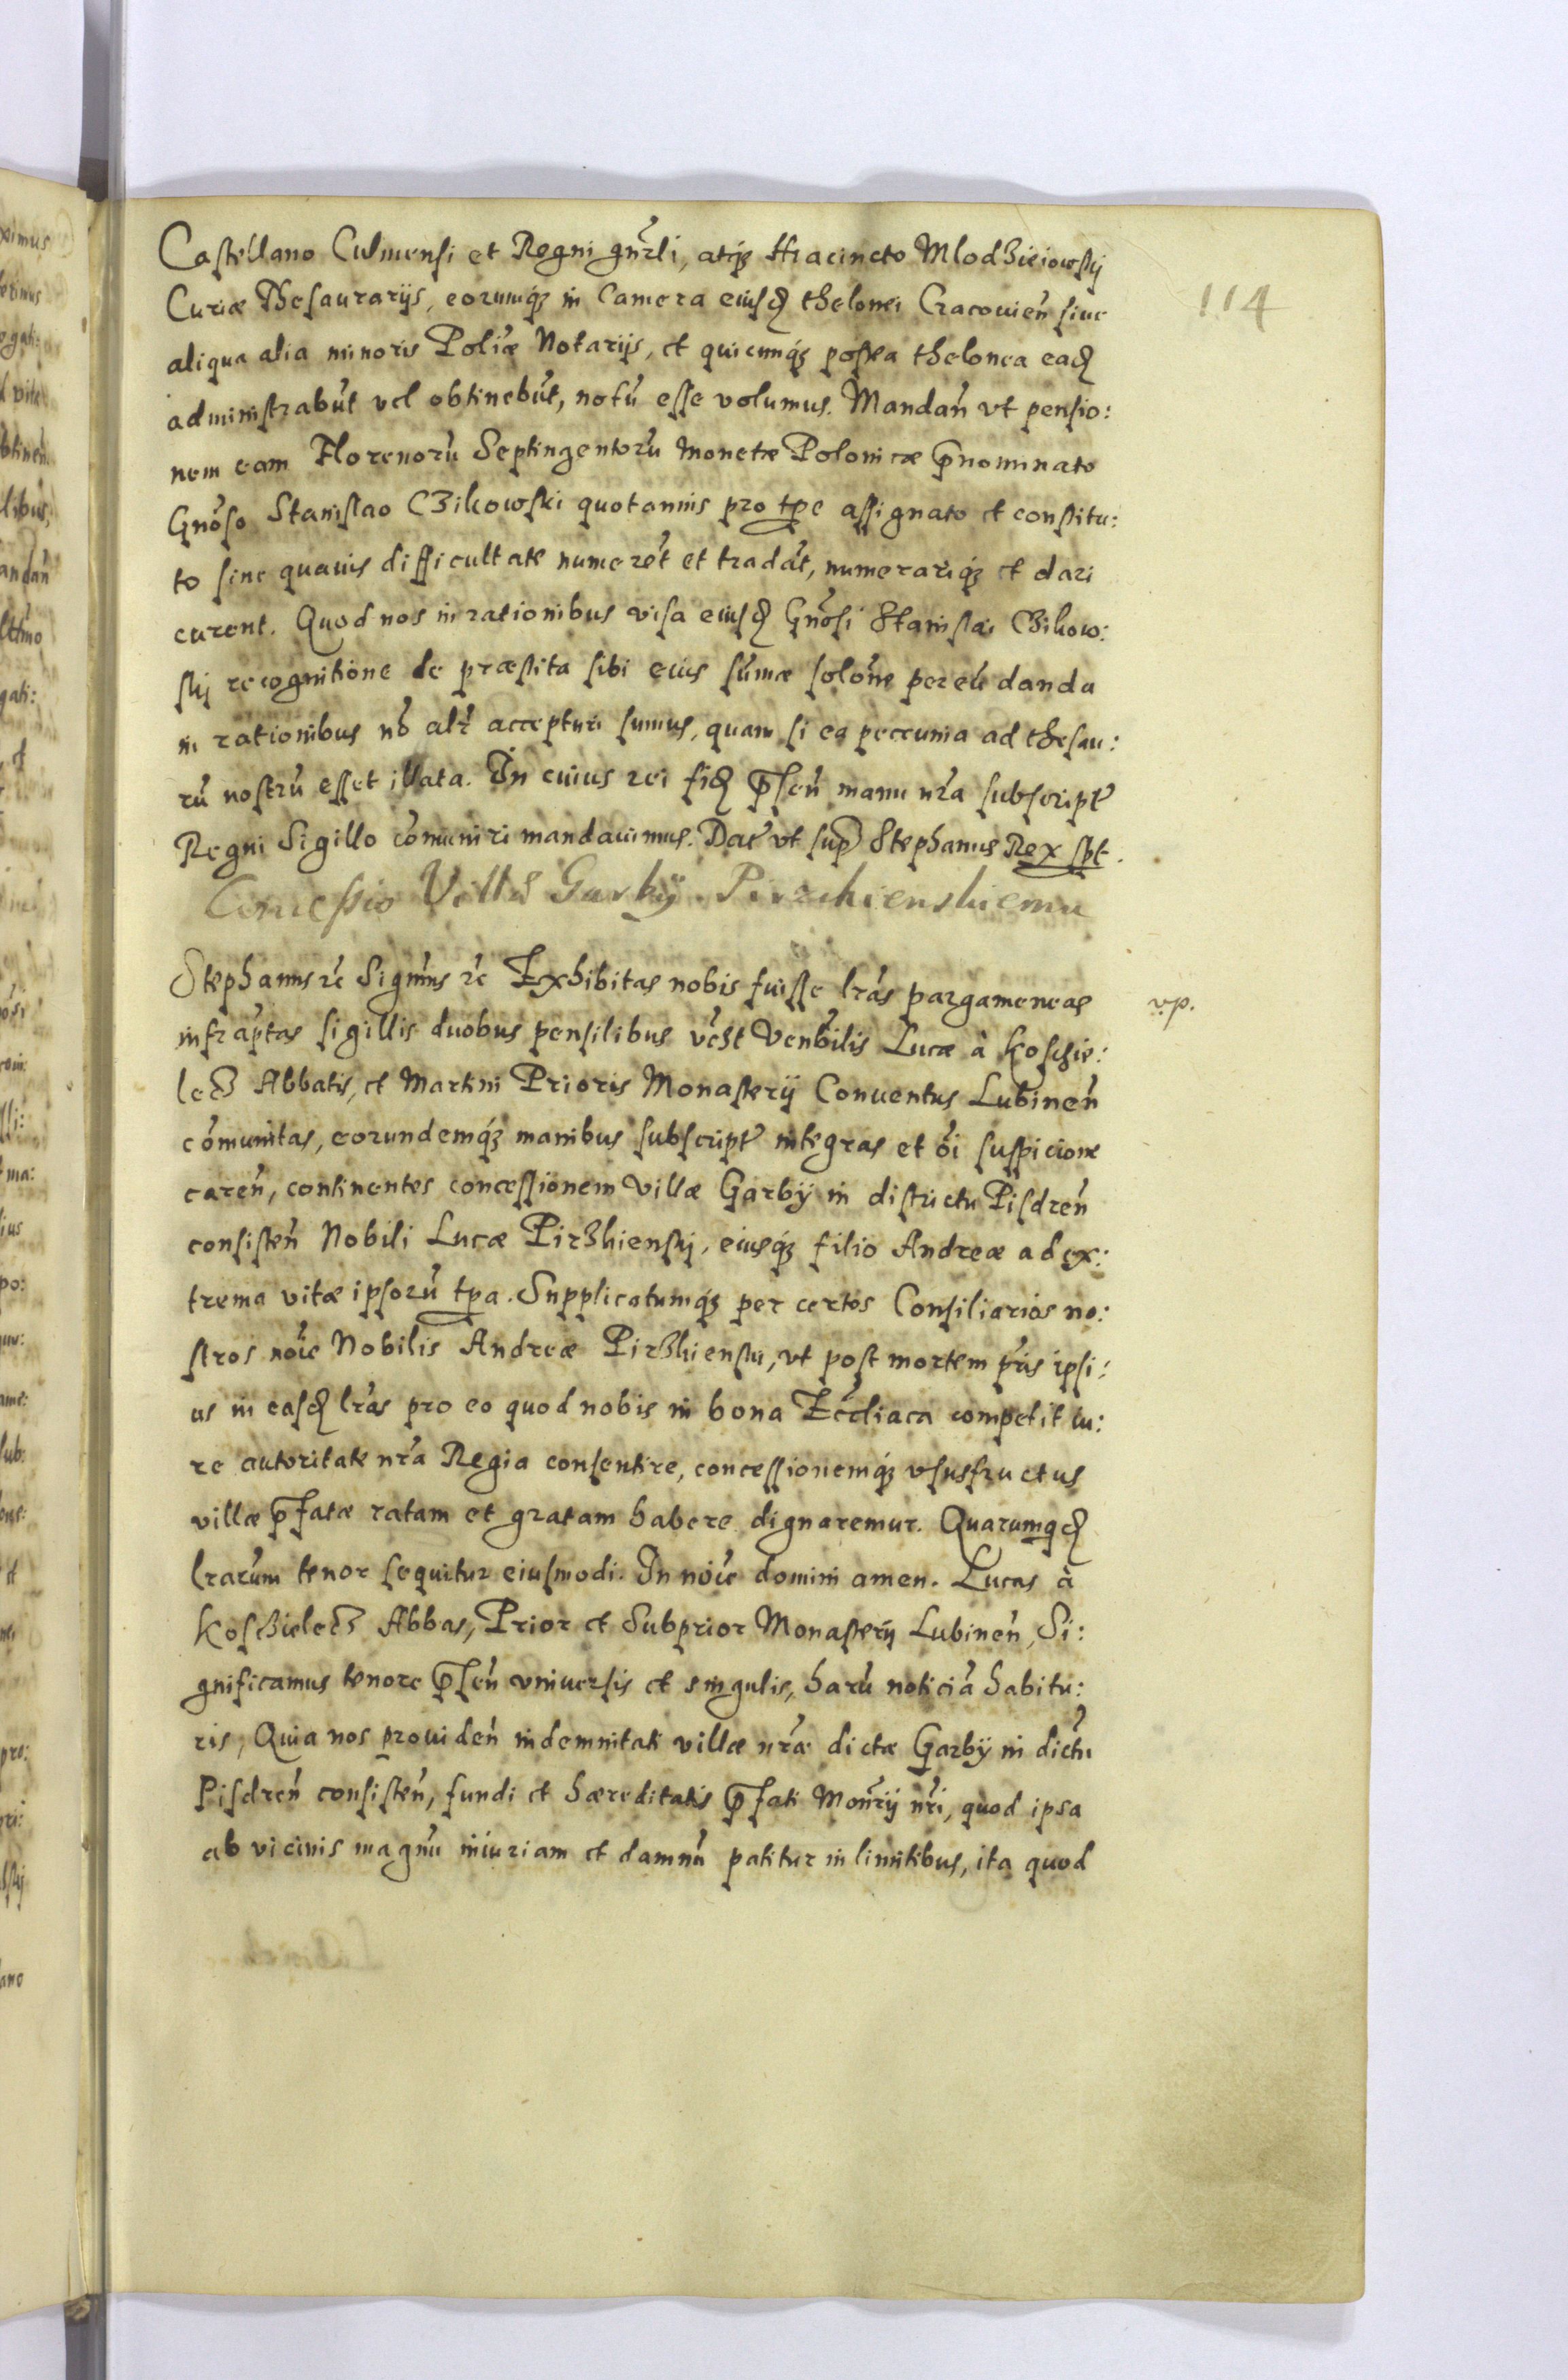 114
Castellano Culmensi et Regni gnrli, atq̃ Hiacincto Mlodzieiowskij
Curiæ Thesaurarijs, eorumq̃ in Camera eiusd thelonei Cracouien̄ siue
aliqua alia minoris Poliæ Notarijs, et quicunq̃ postea thelonea ead
administrabūt vel obtinebūt, notū esse volumus. Mandan̄ vt pensio:
nem eam Florenorū Septingentorū monetæ Polonicæ p̄nominato
Gnōso Stanislao Czikowski quotannis pro tp̄e assignato et constitu:
to sine quauis difficultate numerēt et tradāt, numerariq̃ et dari
curent. Quod nos in rationibus visa eiusd Gnōsi Stanislai Czikow:
skij recognitione de præstita sibi eius sūmæ solōne per eū danda
in rationibus nō alr̄ accepturi sumus, quam si ea peccunia ad thesau:
rū nostrū esset illata. In cuius rei fid p̄sen̄ manu nrā subscript̄
Regni Sigillo cōmuniri mandauimus. Dat̄ vt sup̄ Stephanus Rex spt.
Concessio Villæ Garbÿ Pirzchienskiemu
Stephanus rc̄ Signms rc̄ Exhibitas nobis fuisse lrās pargameneas
v.p.
infraptas sigillis duobus pensilibus vc̄zt Venbīlis Lucæ à Koschie:
lecz Abbatis, et Martini Prioris Monasterij Conuentus Lubinen̄
cōmunitas, eorundemq̃ manibus subscript̄ integras et oī suspicione
caren̄, continentes concessionem villæ Garbÿ in districtu Pisdren̄
consisten̄ Nobili Lucæ Pirzhienskij, eiusq̃ filio Andreæ ad ex:
trema vitæ ipsorū tp̄a. Supplicatumq̃ per certos Consiliarios no:
stros noīe Nobilis Andreæ Pirzhienski, vt post mortem prīs ipsi:
us in easd lrās pro eo quod nobis in bona Ecc̄liaca competit iu:
re autoritate nrā Regia consentire, concessionemq̃ vsusfructus
villæ p̄fatæ ratam et gratam habere dignaremur. Quarumqd
lrarūm tenor sequitur eiusmodi. In noīe domini amen. Lucas à
Koschielecz Abbas, Prior et Subprior Monasterij Lubinen̄, Si:
gnificamus tenore p̄sen̄ vniuersis et singulis, harū noticiā habitu:
ris, Quia nos prouiden̄ indemnitati villæ nrǣ dictæ Garbÿ in dictū
Pisdren̄ consisten̄, fundi et hæreditatis p̄fati Monrīj nrī, quod ipsa
ab vicinis magnū iniuriam et damnū patitur in limitibus, ita quod